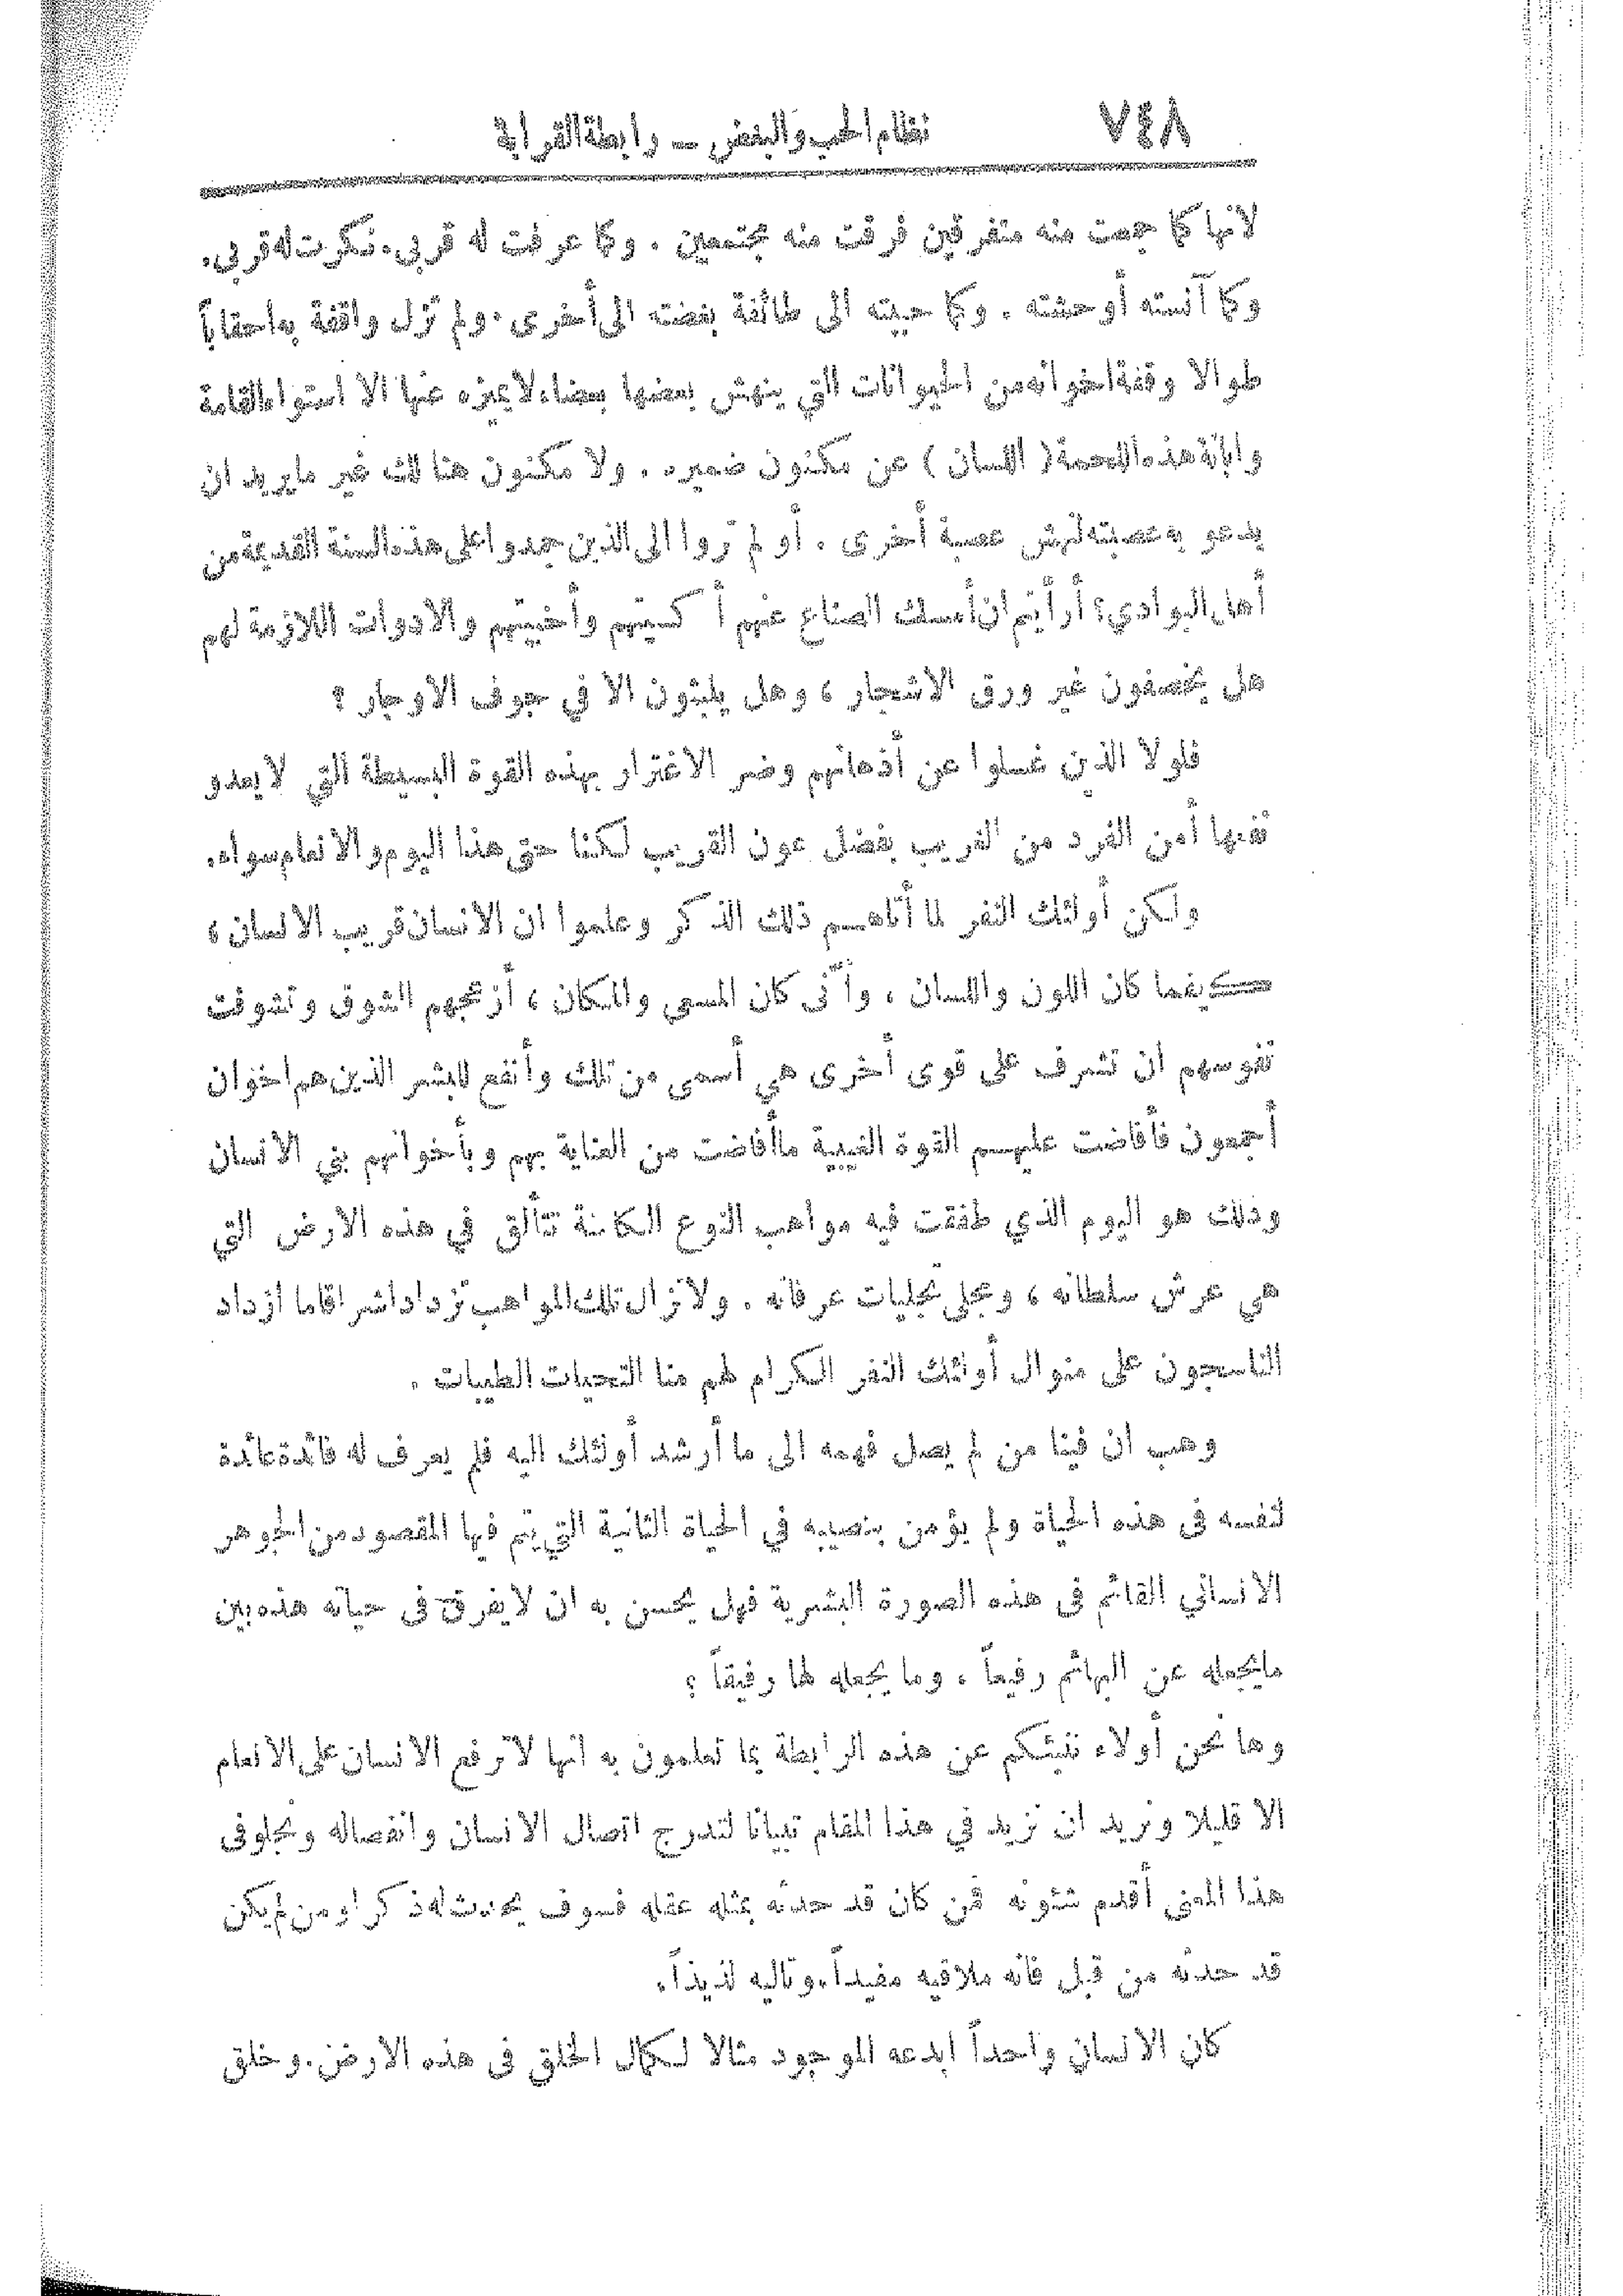 ٧٤٨ نظام الحب والبغض — رابطة القرابة
لانها كما جمعت منه متفرقين فرقت منه مجتمعين . وكما عرفت له قربى. نكرت له قربى.
وكما آنسته أوحشته . وكما حببته الى طائفة بغضته الى أخرى . ولم تزل واقفة به احقاباً
طوالا وقفة اخوانه من الحيوانات التي ينهش بعضها بعضا، لا يميزه عنها الا استواء القامة
وابانة هذه اللحمة ( اللسان ) عن مكنون ضميره . ولا مكنون هنالك غير ما يريد ان
يدعو به عصبته لنهش عصبة أخرى . أو لم تروا الى الذين جمدوا على هذه السنة القديمة من
أهل البوادي؟ أرأيتم ان أمسك الصناع عنهم أكسيتهم وأخبيتهم والادوات اللازمة لهم
هل يخصفون غير ورق الاشجار ، وهل يلبثون الا في جوف الاوجار ؟
فلولا الذين غسلوا عن أذهانهم وضر الاغترار بهذه القوة البسيطة التي لا يعدو
نفعها أمن الفرد من الغريب بفضل عون القريب لكنا حتى هذا اليوم والانعام سواء.
ولكن أولئك النفر لما أتاهم ذلك الذكر وعلموا ان الانسان قريب الانسان ،
كيفما كان اللون واللسان ، وأنّى كان المسمى والمكان ، أزعجهم الشوق وتشوفت
نفوسهم ان تشرف على قوى أخرى هي أسمى من تلك وأنفع للبشر الذين هم اخوان
أجمعون فأفاضت عليهم القوة الغيبية ما أفاضت من العناية بهم وبأخوانهم بني الانسان
وذلك هو اليوم الذي طفقت فيه مواهب النوع الكامنة تتألق في هذه الارض التي
هي عرش سلطانه ، ومجلى تجليات عرفانه . ولا تزال تلك المواهب تزداد اشراقا ما ازداد
الناسجون على منوال أولئك النفر الكرام لهم منا التحيات الطيبات .
وهب ان فينا من لم يصل فهمه الى ما أرشد أولئك اليه فلم يعرف له فائدة عائدة
لنفسه فى هذه الحياة ولم يؤمن بنصيبه في الحياة الثانية التي يتم فيها المقصود من الجوهر
الانساني القائم فى هذه الصورة البشرية فهل يحسن به ان لا يفرق فى حياته هذه بين
ما يجعله عن البهائم رفيعاً ، وما يجعله لها رفيقاً ؟
وها نحن أولاء ننبئكم عن هذه الرابطة بما تعلمون به انها لا ترفع الانسان على الانعام
الا قليلا ونريد ان نزيد في هذا المقام تبيانا لتدرج اتصال الانسان وانفصاله ونجلو فى
هذا المعنى أقدم شئونه فمن كان قد حدثه بمثله عقله فسوف يحدث له ذكرا ومن لم يكن
قد حدثه من قبل فانه ملاقيه مفيداً، وتاليه لذيذاً.
كان الانسان واحداً ابدعه الموجود مثالا لكمال الخلق فى هذه الارض. وخلق